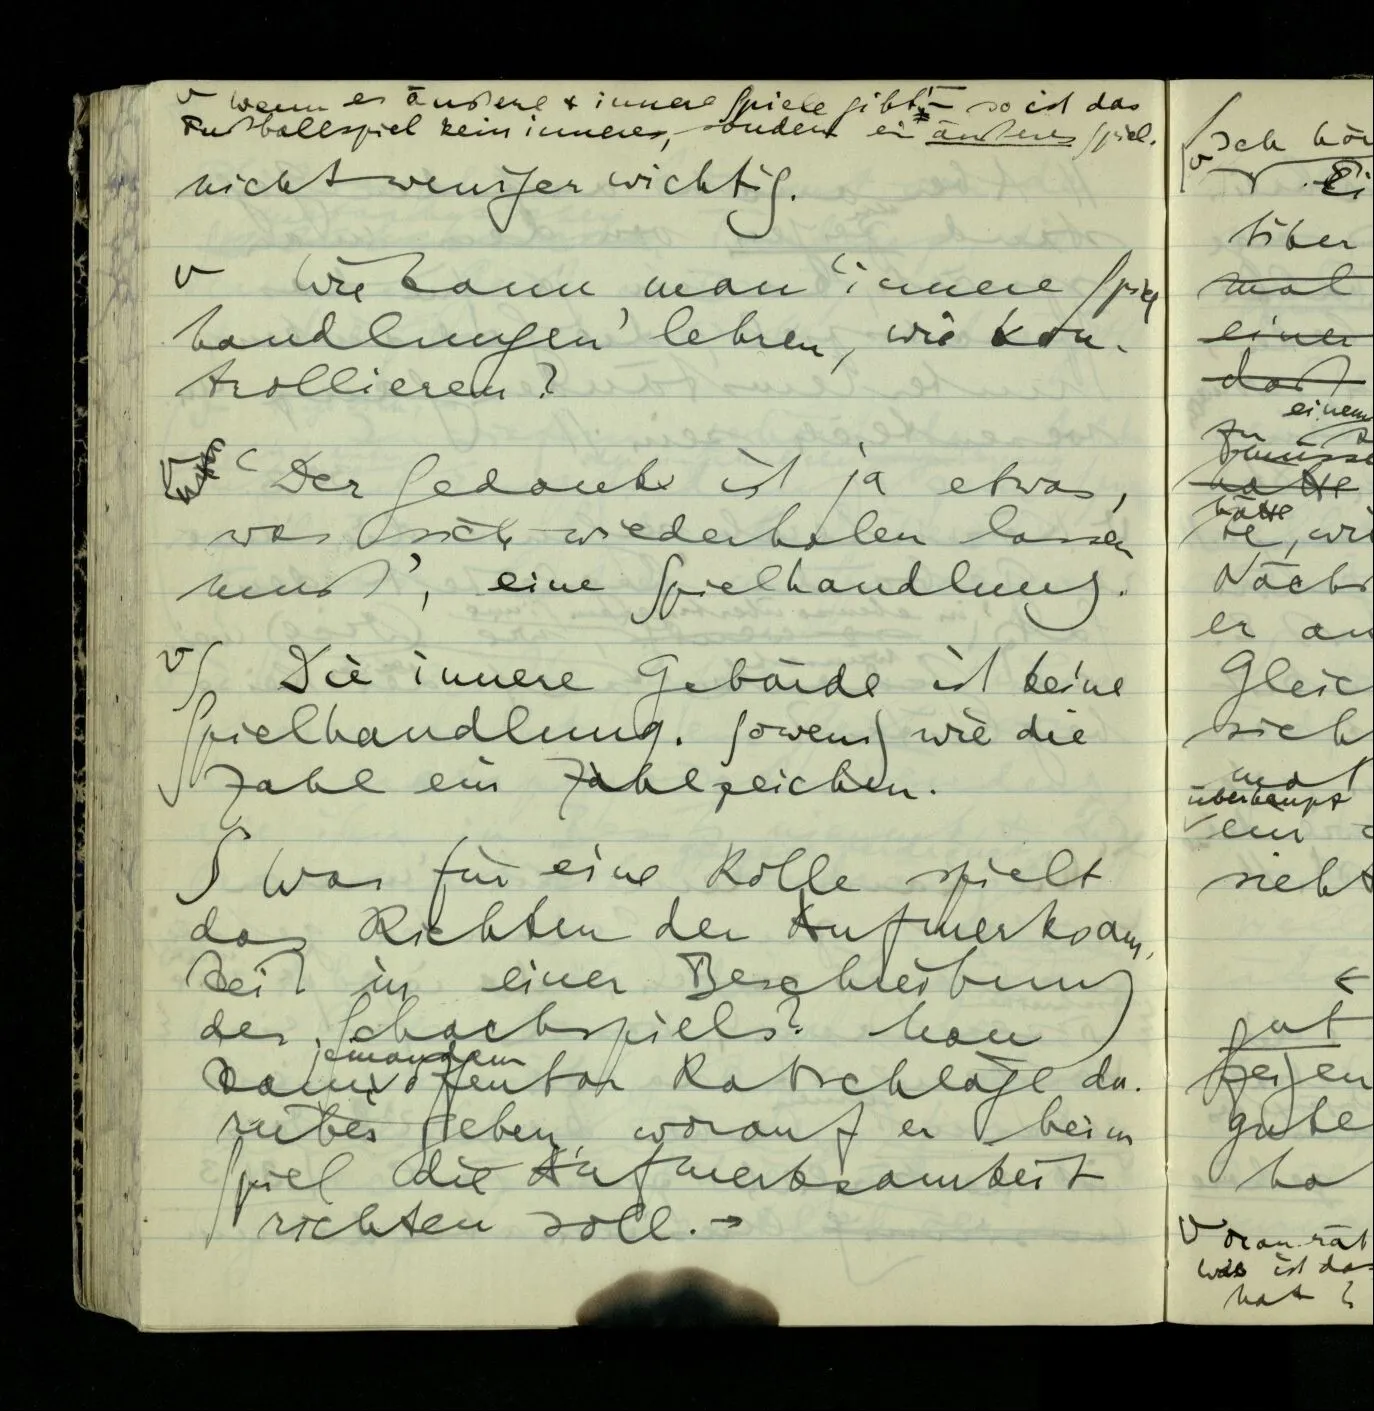 v wenn es äußere & innere Spiele gibt – so ist das
Fußballspiel kein inneres, sondern ein äußeres Spiel.
nicht weniger wichtig.
v Wie kann man 'innere Spiel
handlungen' lehren, wie kon-
trollieren?
v 'Der Gedanke ist ja etwas,
was sich wiederholen lassen
muß', eine Spielhandlung.
v ∫ Die innere Gebärde ist keine
Spielhandlung. Sowenig wie die
Zahl ein Zahlzeichen.
∫ Was für eine Rolle spielt
das Richten der Aufmerksam-
keit in einer Beschreibung
des Schachspiels? Man
jemandem
kann offenbar Ratschläge da-
rüber geben, worauf er beim
Spiel die Aufmerksamkeit
richten soll. →
∫ Ich hör
v Ei
über
mal
einer
daß
einem
zu
müsse
hatte
hätte
te, wie
Nächs
er an
Gleic
sich
mal
überhaupt
ein
sieht
←
gut
Geigen
gute
ha
v
was ist das
hat